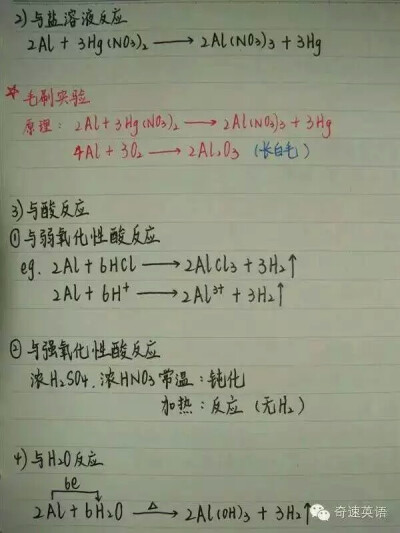 2)与盐溶液反应
2Al + 3Hg(NO3)2 ⟶ 2Al(NO3)3 + 3Hg
☆ 毛刷实验
原理: 2Al + 3Hg(NO3)2 ⟶ 2Al(NO3)3 + 3Hg
4Al + 3O2 ⟶ 2Al2O3 (长白毛)
3)与酸反应
①与弱氧化性酸反应
eg. 2Al + 6HCl ⟶ 2AlCl3 + 3H2↑
2Al + 6H⁺ ⟶ 2Al³⁺ + 3H2↑
②与强氧化性酸反应
浓H2SO4. 浓HNO3 常温:钝化
加热:反应(无H2)
4)与H2O反应
6e
2Al + 6H2O ⟶△ 2Al(OH)3 + 3H2↑
奇速英语